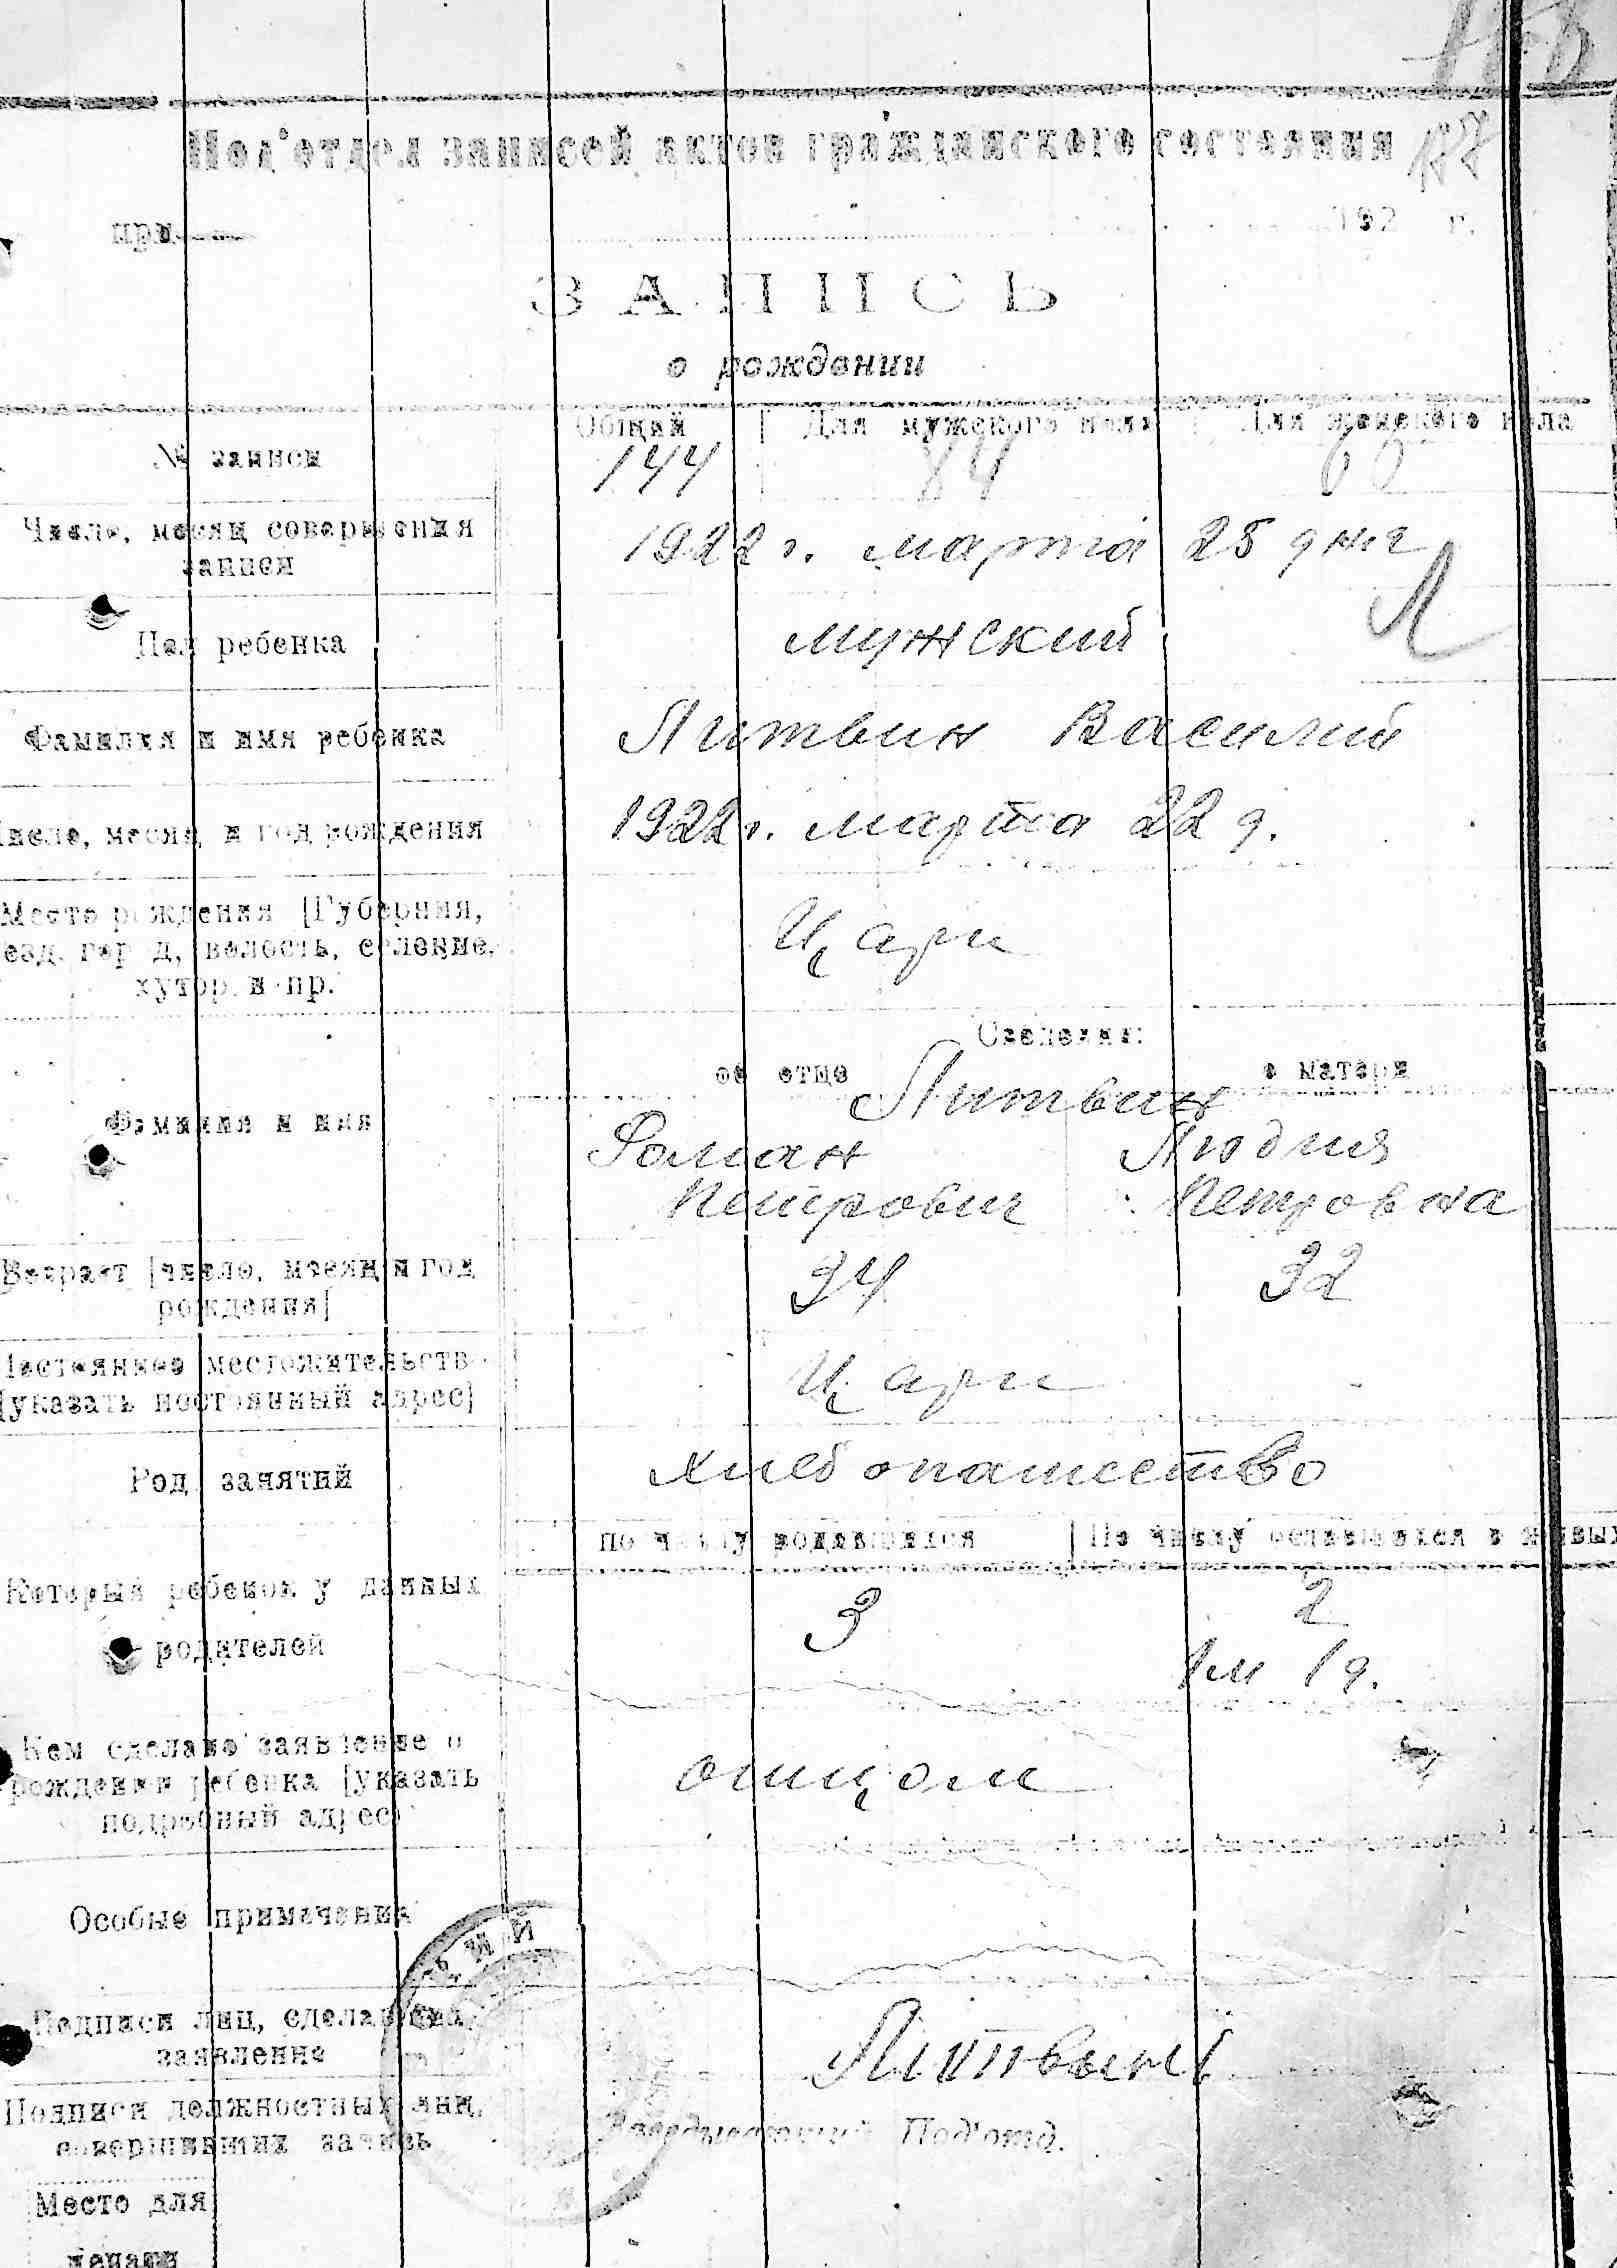 Под'отдел записей актов гражданского состояния
при 192 г.
ЗАПИСЬ
о рождении
Общий Для мужского пола Для женского пола
№ записи 144 84 60
Число, месяц совершения
записи 1922 г. марта 25 дня
Л
Пол ребенка мужский
Фамилия и имя ребенка Литвин Василий
Число, месяц и год рождения 1922 г. марта 22 д.
Место рождения [Губерния,
уезд, город, волость, селение,
хутор и пр. Цари
Сведения:
об отце о матери
Литвин
Фамилия и имя Роман Людия
Петрович Петровна
Возраст [число, месяц и год
рождения] 34 32
Постоянное местожительств
[указать постоянный адрес] Цари
Род занятий хлебопашество
по числу родившихся По числу оставшихся в живых
Который ребенок у данных
родителей 3 2
1м 1д.
Кем сделано заявление о
рождении ребенка [указать
подробный адрес] отцом
Особые примечания
Подписи лиц, сделавших
заявление Литвин
Подписи должностных лиц,
совершивших запись Заведывающий Под'отд.
Место для
печати